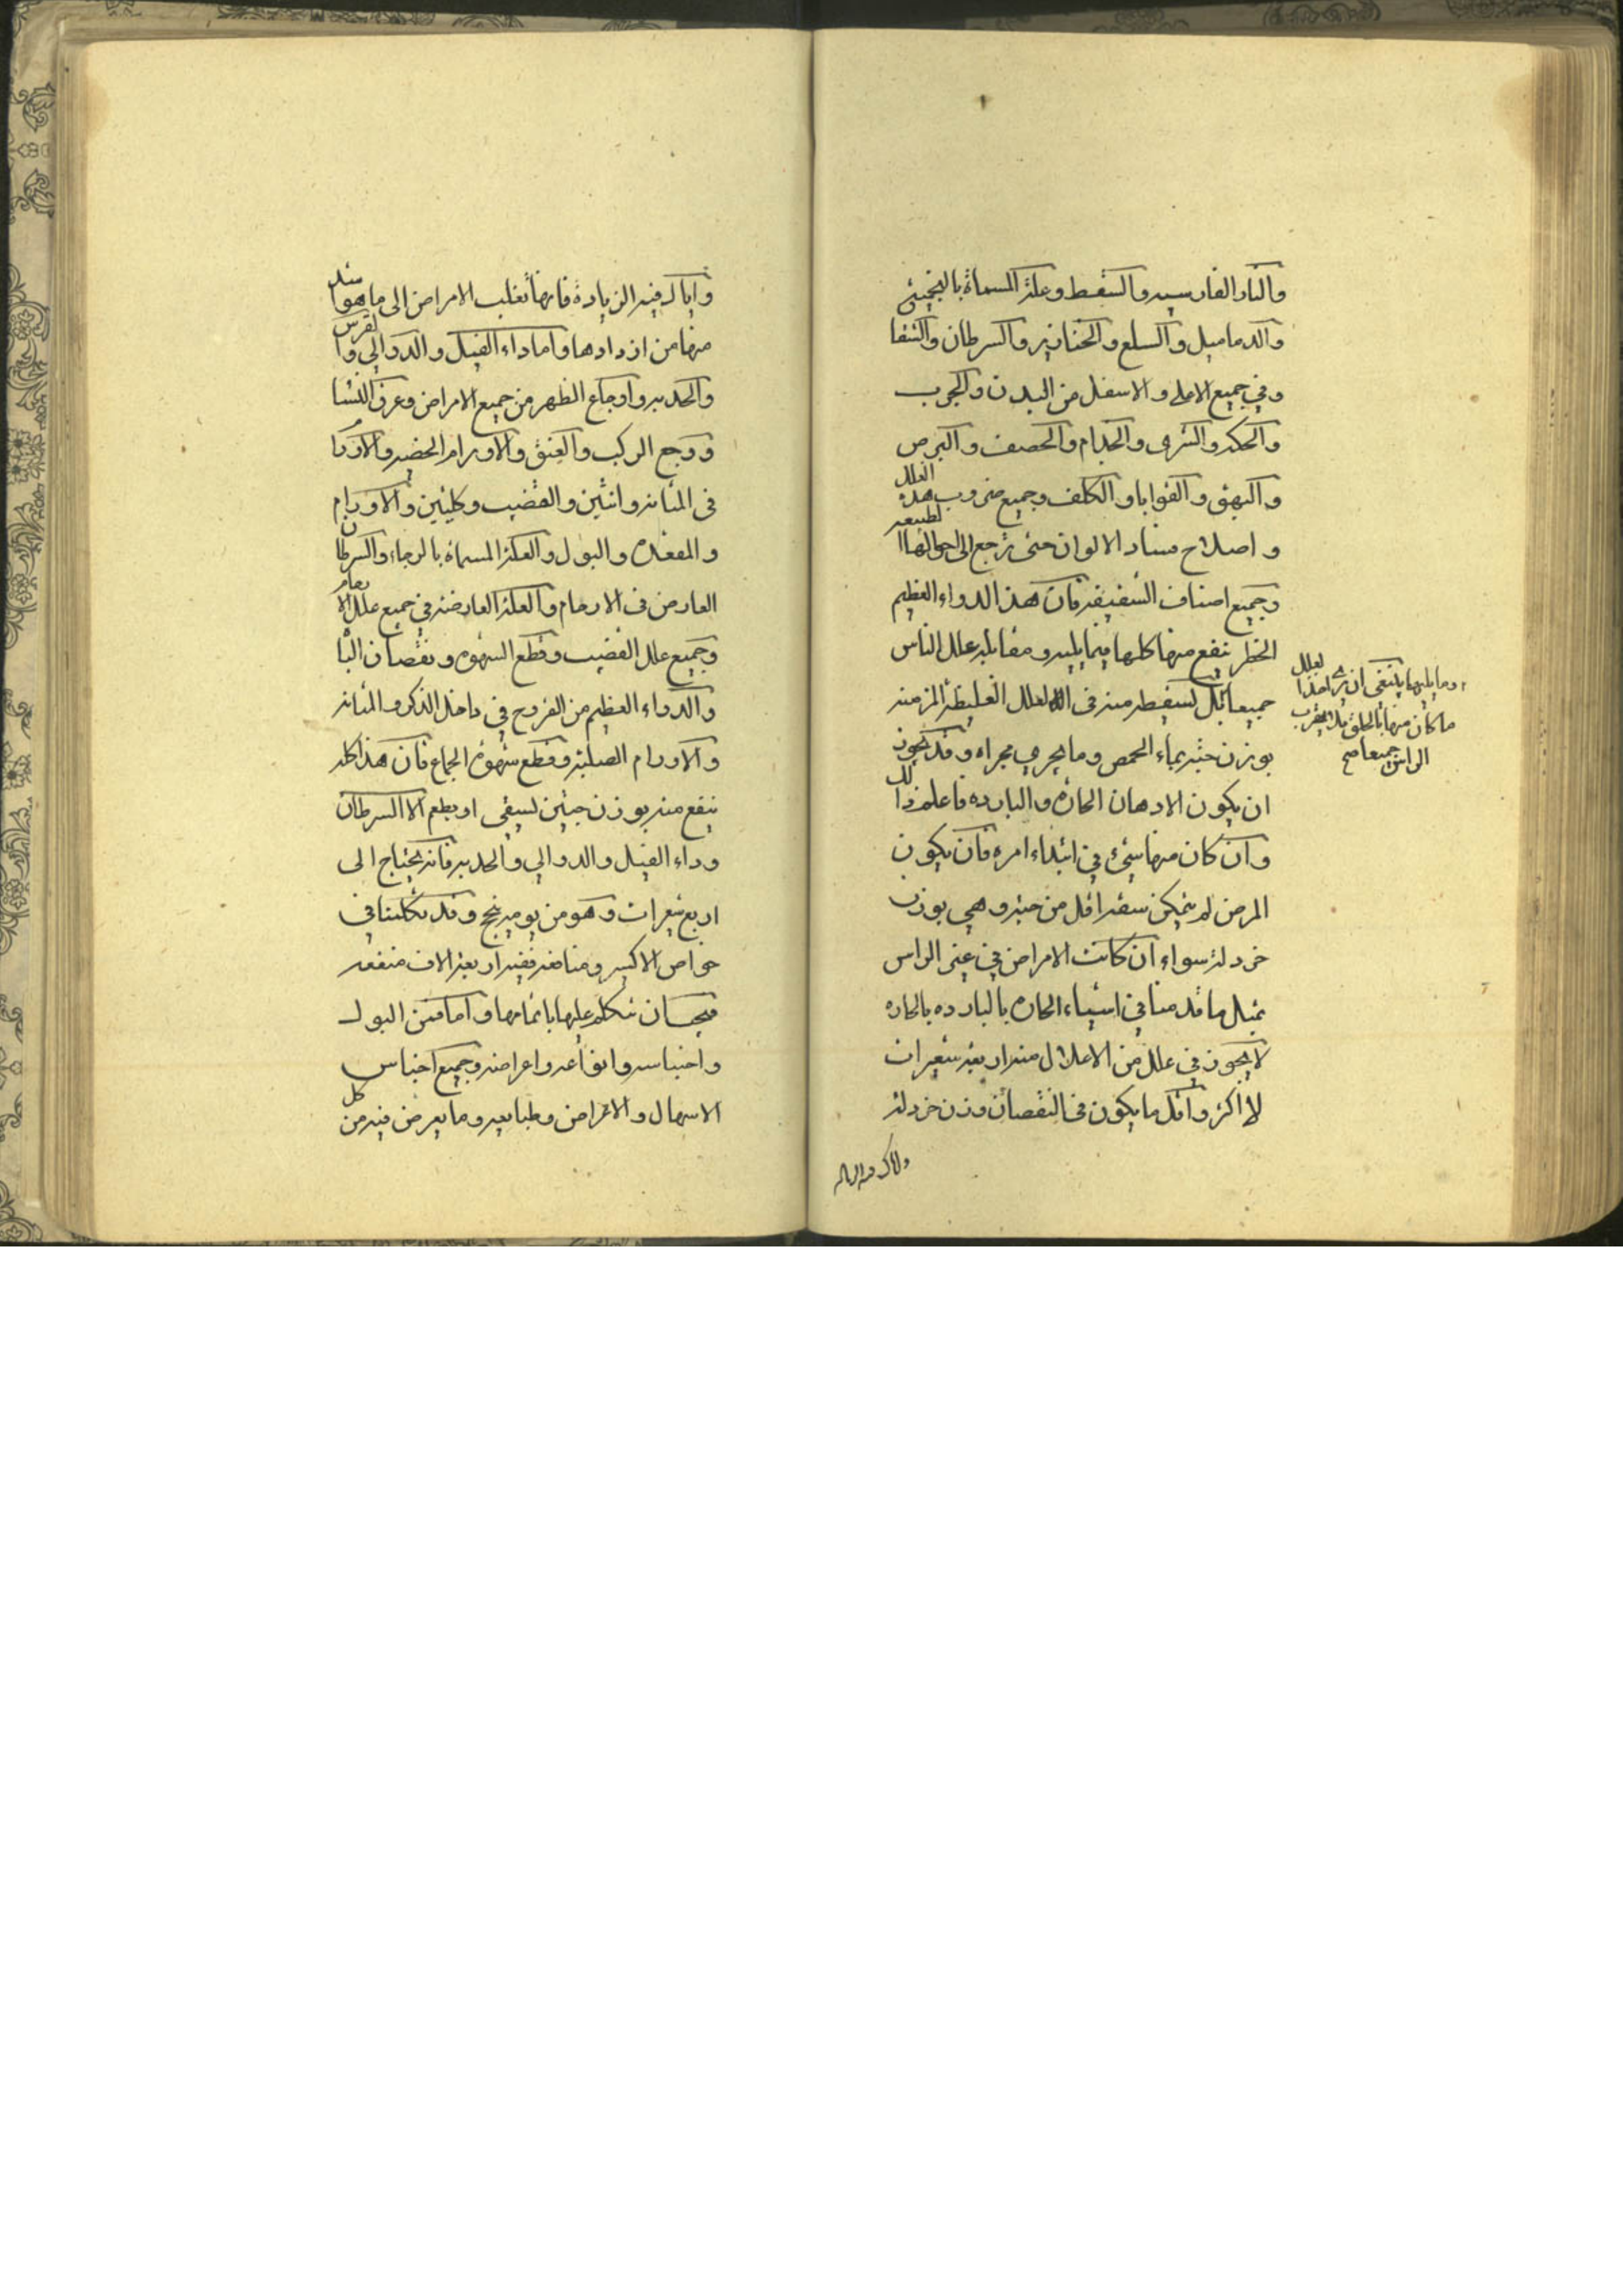 والنار الفارسيه والسقط وعلة المسماة بالبجيئى
والدماميل والسلع والخنازير والسرطان والشفا
وفي جميع الاعلى والاسفل من البدن والجرب
والحكه والشرى والجذام والحصف والبرص
والبهق والقوابا والكلف وجميع ضروب هذه العلل
واصلاح فساد الالوان حتى ترجع الى احوالها الطبيعيه
وجميع اصناف الشقيقه فان هذا الدواء العظيم
الخطر ينفع منها كلها فيما يليه ومقابله علل الناس
جميعا بل لسيقط منه فى العلل الغليظة المزمنه
بوزن حبة بماء الحمص وما يجري مجراه وقد يجوز
ان يكون الادهان الحاره والبارده فاعلم ذالك
وان كان منها شئ في ابتداء امره فان يكون
المرض لم يتمكن سقيه اقل من حبة وهي بوزن
خردلة سواء ان كانت الامراض في غير الراس
بمثل ما قدمنا في اشياء الحاره بالبارده بالحاره
لا يجوز في علل من الاعلال منه اربعة شعيرات
لا اكثر واقل ما يكون فى النقصان وزن خردلة
وما يليها ينبغى ان العلل
ما كان منها بالحلق بقرب
الراس جميعا صح
واياك فيه الزيادة فانها تغلب الامراض الى ما هو اشد
منها من ازدادها واما داء الفيل والدوالي والنقرس
والحدبه واوجاع الظهر من جميع الامراض وعرق النسا
ووجع الركب والعنق والاورام الخضر والاورا
فى المثانه وانثين والقضيب وكليتين والاورام
والمقعده والبول والعلة المسماة بالرجاء والسرطان
العارض فى الارحام والعلة العارضه في جميع علل الارحام
وجميع علل القضيب وقطع الشهوه ونقصان البا
والدواء العظيم من القروح في داخل الذكر والمثانه
والاورام الصلبة وقطع شهوة الجماع فان هذا كله
ينفع منه بوزن حبتين لسيقى او يطعم الا السرطان
وداء الفيل والدوالي والحدبه فانه يحتاج الى
اربع شعيرات وهو من يوميه ينجح وقد تكلمنا في
خواص الاكسير ومنافعه ففيه اربعة الاف منفعه
فيجب ان نتكلم عليها باتمامها واما من البول
واحتباسه وانواعه واعراضه وجميع احتباس
الاسهال والامراض وطبايعه وما يعرض فيه من كل